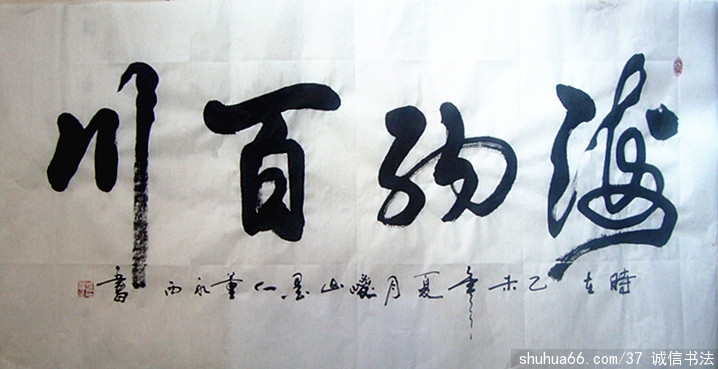 海纳百川
時在乙未年夏月巉山墨人董永西書
shuhua66.com/37 诚信书法